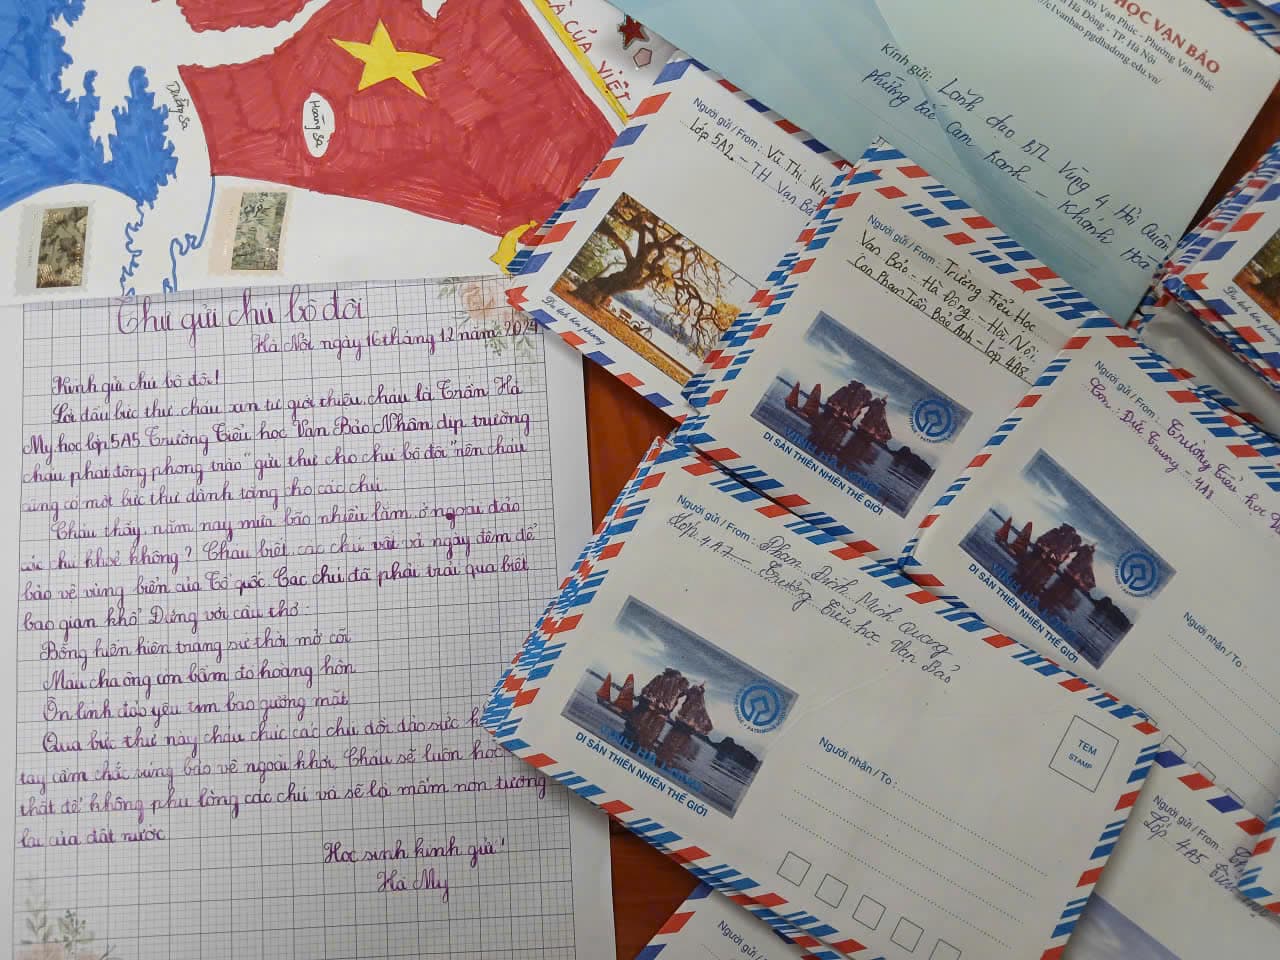 À CỦA VIỆT
Trường Sa
Hoàng Sa
HỌC VẠN BẢO
Vạn Phúc - Phường Vạn Phúc
Hà Đông - TP. Hà Nội
c1vanbao.pgdhadong.edu.vn/
Kính gửi: Lãnh đạo BTL Vùng 4 Hải Quân
phường bắc Cam Ranh - Khánh Hoà
Người gửi / From: Vũ Thị Kim
Lớp 5A2 - TH Vạn Bả
Người gửi / From: Trường Tiểu Học
Vạn Bảo - Hà Đông - Hà Nội.
Con Phạm Trần Bảo Anh - Lớp 4A8
DI SẢN THIÊN NHIÊN THẾ GIỚI
Người gửi / From: Trường Tiểu học
Con: Đức Trung - 4A8
DI SẢN THIÊN NHIÊN THẾ GIỚI
Người nhận / To:
Người gửi / From: Phạm Đình Minh Quang
Lớp: 4A7 - Trường Tiểu học Vạn Bảo
VỊNH HẠ LONG
DI SẢN THIÊN NHIÊN THẾ GIỚI
Người nhận / To:
TEM
STAMP
Người gửi / From:
Lớp 4A5
Người gửi / From:
Thư gửi chú bộ đội
Hà Nội ngày 16 tháng 12 năm 2024
Kính gửi chú bộ đội!
Lời đầu bức thư cháu xin tự giới thiệu, cháu là Trần Hà
My học lớp 5A5 Trường Tiểu học Vạn Bảo. Nhân dịp trường
cháu phát động phong trào "gửi thư cho chú bộ đội" nên cháu
cũng có một bức thư dành tặng cho các chú
Cháu thấy năm nay mưa bão nhiều lắm ở ngoài đảo
các chú khoẻ không? Cháu biết các chú vất vả ngày đêm để
bảo vệ vùng biển của Tổ quốc. Các chú đã phải trải qua biết
bao gian khổ Đúng với câu thơ:
Bổng hiên hiên trang sư thời mở cõi
Máu cha ông còn bầm đỏ hoàng hôn
Ôn linh đảo yêu tim bao gương mặt
Qua bức thư này cháu chúc các chú dồi dào sức
tay cầm chắc súng bảo vệ ngoài khơi, Cháu sẽ luôn học
thật để không phụ lòng các chú và sẽ là mầm non tương
lai của đất nước
Học sinh kính gửi!
Hà My